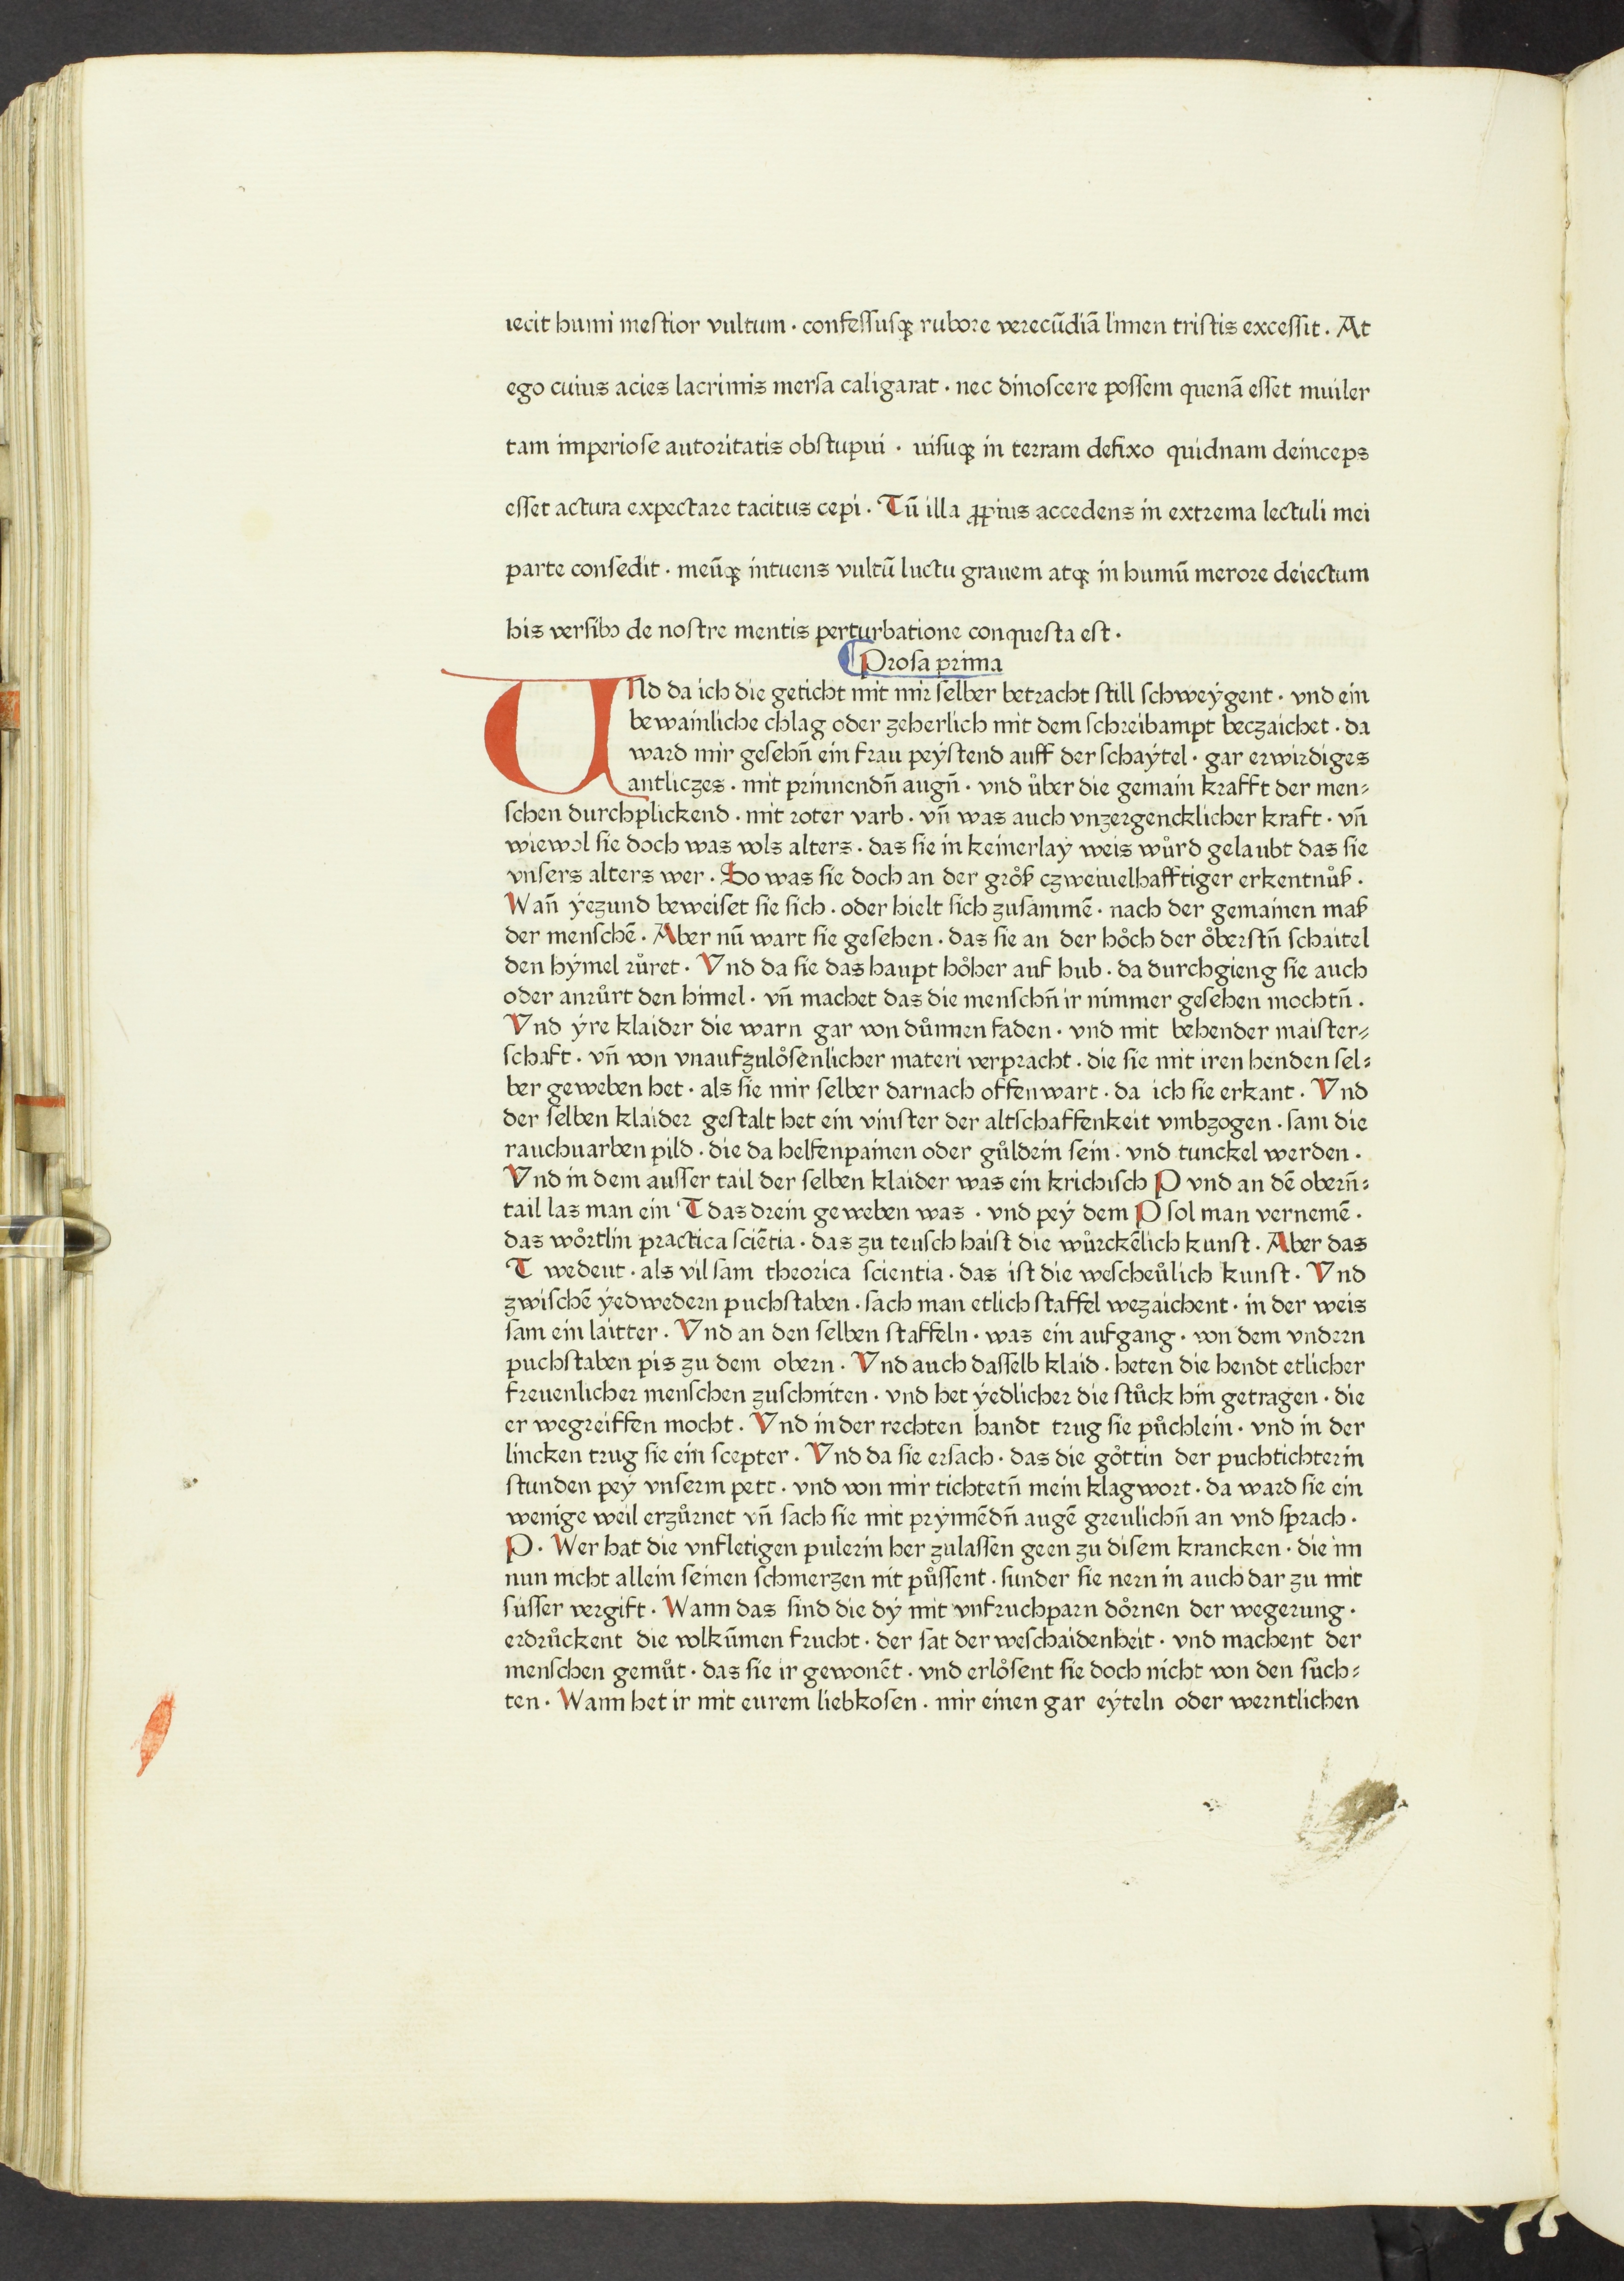 iecit humi mestior vultum · confessusqꝫ rubore verecūdiā limen tristis excessit . At
ego cuius acies lacrimis mersa caligarat · nec dinoscere possem quenā esset muiler
tam imperiose autoritatis obstupui · uisuqꝫ in terram defixo quidnam deinceps
esset actura expectare tacitus cepi . Tū illa ꝓpius accedens in extrema lectuli mei
parte consedit · meūqꝫ intuens vultū luctu grauem atqꝫ in humū merore deiectum
his versibꝰ de nostre mentis perturbatione conquesta est ·
Prosa prima
UNd da ich die geticht mit mir selber betracht still schweẏgent · vnd ein
bewainliche chlag oder zeherlich mit dem schreibampt beczaichet · da
ward mir gesehn̄ ein frau peẏstend auff der schaẏtel · gar erwirdiges
antliczes · mit prinnendn̄ augn̄ · vnd uͦber die gemain krafft der men⸗
schen durchplickend · mit roter varb · vn̄ was auch vnzergencklicher kraft · vn̄
wiewol sie doch was vols alters · das sie in keinerlaẏ weis wuͦrd gelaubt das sie
vnsers alters wer . So was sie doch an der groͦß czweiuelhafftiger erkentnuͦß .
Wan̄ ẏezund beweiset sie sich . oder hielt sich zusammē · nach der gemainen maß
der menschē . Aber nū wart sie gesehen . das sie an der hoͦch der oͦberstn̄ schaitel
den hẏmel ruͦret . Vnd da sie das haupt hoͦher auf hub . da durchgieng sie auch
oder anruͦrt den himel · vn̄ machet das die menschn̄ ir nimmer gesehen mochtn̄ .
Vnd ẏre klaider die warn gar von duͦnnen faden · vnd mit behender maister⸗
schaft · vn̄ von vnaufzuloͦsenlicher materi verpracht . die sie mit iren henden sel⸗
ber geweben het · als sie mir selber darnach offenwart . da ich sie erkant . Vnd
der selben klaider gestalt het ein vinster der altschaffenkeit vmbzogen · sam die
rauchuarben pild . die da helfenpainen oder guͦldein sein · vnd tunckel werden .
Vnd in dem ausser tail der selben klaider was ein krichisch P vnd an dē obern̄⸗
tail las man ein T das drein geweben was · vnd peẏ dem P sol man vernemē .
das woͦrtlin practica sciētia · das zu teusch haist die wuͦrckēlich kunst . Aber das
T wedeut · als vil sam theorica scientia . das ist die wescheuͦlich kunst · Vnd
zwischē ẏedwedern puchstaben . sach man etlich staffel wezaichent · in der weis
sam ein laitter . Vnd an den selben staffeln · was ein aufgang · von dem vndern
puchstaben pis zu dem obern . Vnd auch dasselb klaid . heten die hendt etlicher
freuenlicher menschen zuschniten · vnd het ẏedlicher die stuͦck hin getragen . die
er wegreiffen mocht . Vnd in der rechten handt trug sie puͦchlein · vnd in der
lincken trug sie ein scepter . Vnd da sie ersach · das die goͦttin der puchtichterin
stunden peẏ vnserm pett · vnd von mir tichtetn̄ mein klagwort . da ward sie ein
wenige weil erzuͦrnet vn̄ sach sie mit prẏnnēdn̄ augē greulichn̄ an vnd sprach ·
P . Wer hat die vnfletigen pulerin her zulassen geen zu disem krancken . die im
nun nicht allein seinen schmerzen nit puͦssent · sunder sie nern in auch dar zu mit
susser vergift . Wann das sind die dẏ mit vnfruchparn doͦrnen der wegerung .
erdruͦckent die volkūmen frucht · der sat der weschaidenheit · vnd machent der
menschen gemuͦt · das sie ir gewonēt · vnd erloͦsent sie doch nicht von den suͦch⸗
ten · Wann het ir mit eurem liebkosen · mir einen gar eẏteln oder werntlichen